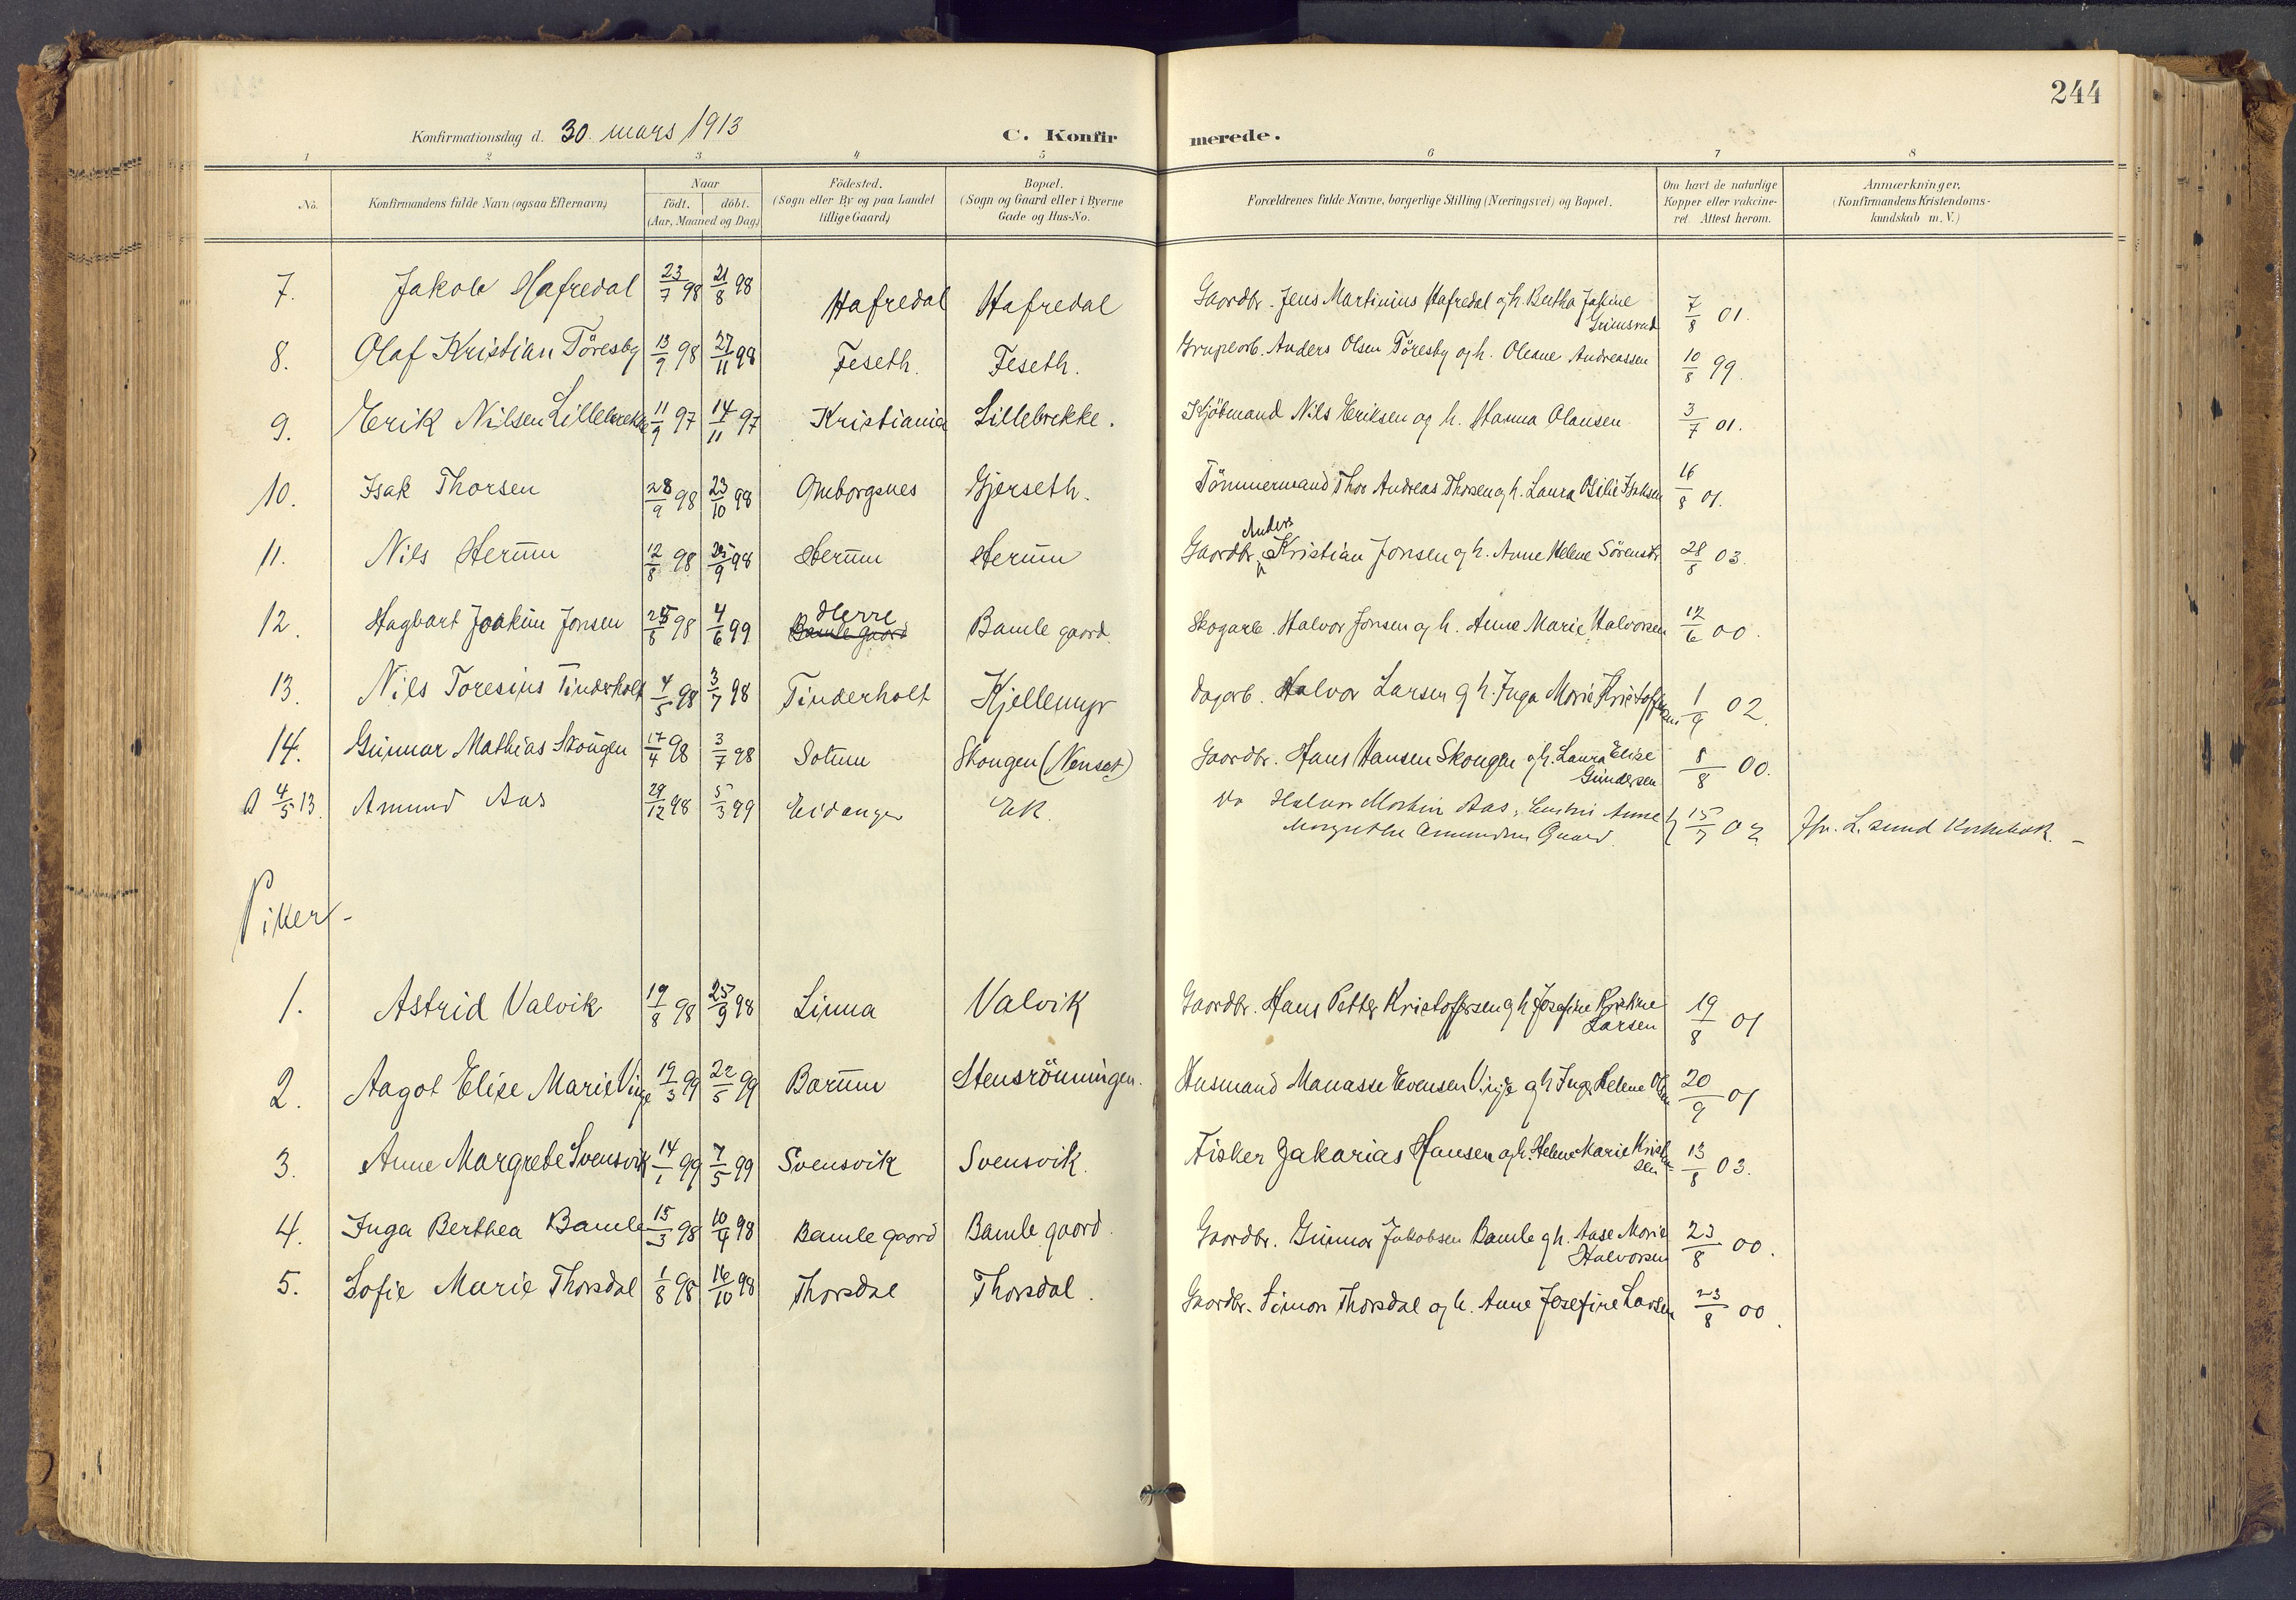 244
Konfirmationsdag d. 30. mars 1913
C. Konfirmerede.
1 2 3 4 5 6 7 8
No.
Konfirmandens fulde Navn (ogsaa Efternavn)
Naar
födt. döbt.
(Aar, Maaned og Dag)
Födested.
(Sogn eller By og paa Landet
tillige Gaard)
Bopæl.
(Sogn og Gaard eller i Byerne
Gade og Hus-No.
Forældrenes fulde Navne, borgerlige Stilling (Næringsvei) og Bopæl.
Om havt de naturlige
Kopper eller vakcine-
ret. Attest herom.
Anmærkninger.
(Konfirmandens Kristendoms-
kundskab m. V.)
7. Jakob Hafredal 23/7 98 21/8 98 Hafredal Hafredal Gaardbr. Jens Martinius Hafredal og h. Bertha Jakine Grimsrud 7/8 01.
8. Olaf Kristian Töresby 13/9 98 27/11 98 Feseth. Feseth. Grubearb. Anders Olsen Töresby og h. Oleane Andreassen 10/8 99.
9. Erik Nilsen Lillebrekke 11/9 97 14/11 97 Kristiania Lillebrekke. Kjöbmand Nils Eriksen og h. Hanna Olausen 3/7 01.
10. Isak Thorsen 28/9 98 23/10 98 Omborgsnes Gjerseth. Tömmermand Thor Andreas Thorsen og h. Laura Otilie Isaksen 16/8 01.
11. Nils Herum 12/8 98 25/9 98 Herum Herum Gaardbr. Anders Kristian Jonsen og h. Anne Helene Sörensdr. 28/8 03.
12. Hagbart Joakim Jonsen 25/8 98 4/6 99 Bamle gaard Herre Bamle gaard. Skogarb. Halvor Jonsen og h. Anne Marie Halvorsen 12/6 00.
13. Nils Toresius Tinderholt 4/5 98 3/7 98 Tinderholt Kjellemyr Dagarb. Halvor Larsen og h. Inga Marie Kristoffersen 1/9 02.
14. Gunnar Mathias Skougen 17/4 98 3/7 98 Solum Skougen (Nenset) Gaardbr. Hans Hansen Skougen og h. Laura Elise Gundersen 8/8 00.
4/5 13. Amund Aas 29/12 98 5/3 99 Eidanger Ek Halvor Martin Aas, hustru Anne
Margrethe Amundsen 15/7 L.sund Kirkebok. -
Piker -
1. Astrid Valvik 19/8 98 25/9 98 Linna Valvik Gaardbr. Hans Petter Kristoffersen og h Josefine Kristine Larsen 19/8 01
2. Aagot Elise Marie Vinje 19/3 99 22/5 99 Barum Stensrönningen. Husmand Manasse Evensen Vinje og h Inger Helene Olsen 20/9 01
3. Anne Margrete Svensvik 14/1 99 7/5 99 Svensvik Svensvik. Fisker Zakarias Hansen og h. Helene Marie Kristensen 13/8 03.
4. Inga Berthea Bamle 15/3 98 10/4 98 Bamle gaard Bamle gaard. Gaardbr. Gunnar Jakobsen Bamle og h. Aase Marie Halvorsen 23/8 00.
5. Sofie Marie Thorsdal 1/8 98 16/10 98 Thorsdal Thorsdal. Gaardbr. Simon Thorsdal og h. Anne Josefine Larsen 23/8 00.